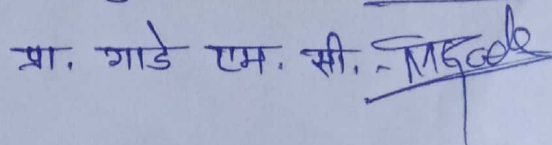 प्रा. गाडे एम. सी. - MGade